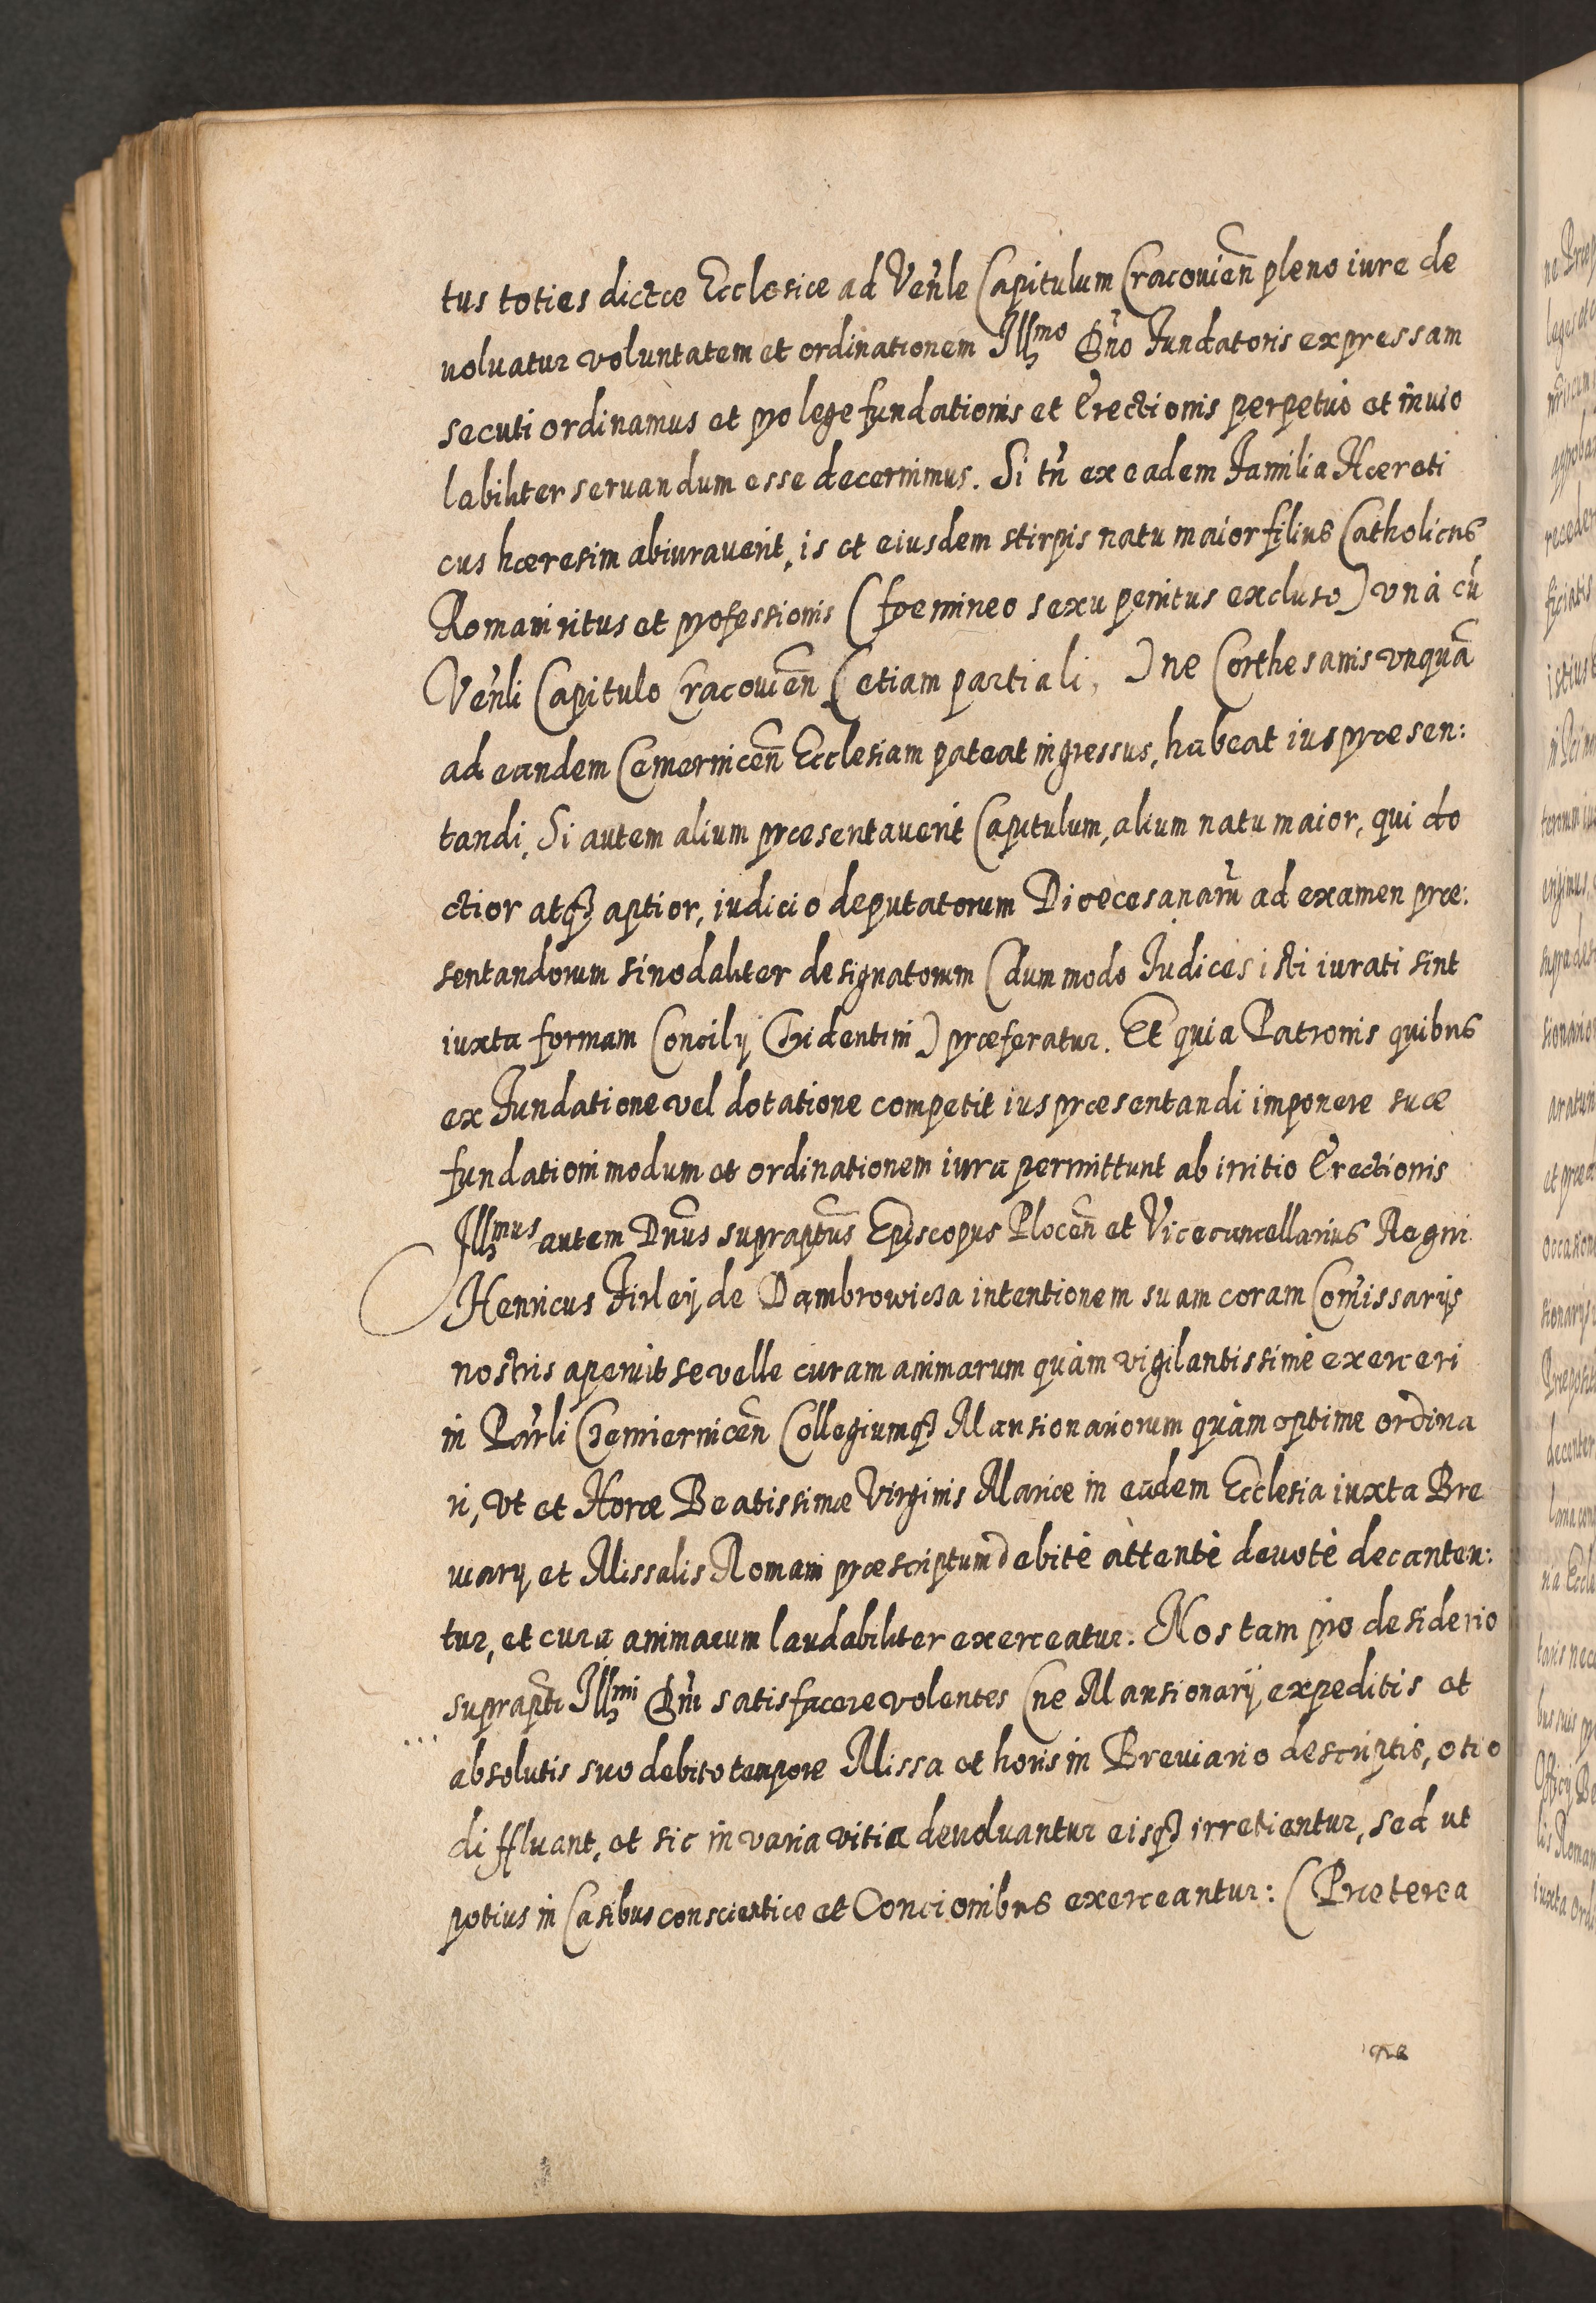 tus toties dictæ Ecclesiæ ad Ven̄le Capitulum Cracouien̄ pleno iure de
uoluatur voluntatem et ordinationem Illmo Dn̄o Fundatoris expressam
secuti ordinamus et pro lege fundationis et Erectionis perpetuò et inuio
labiliter seruandum esse decernimus. Si tn̄ ex eadem Familia Hæreti
cus hæresim abiurauerit, is et eiusdem stirpis natu maior filius Catholicus
Romani ritus et professionis (fœmineo sexu penitus excluso) vnà cū
Ven̄li Capitulo Cracouien̄ (etiam partiali,) ne Corthesanis vnquā
ad eandem Cemernicen̄ Ecclesiam pateat ingressus, habeat ius præsen:
tandi. Si autem alium præsentauerit Capitulum, alium natu maior, qui do
ctior atq₃ aptior, iudicio deputatorum Diœcesanarū ad examen præ:
sentandorum sinodaliter designatorum (dummodo Iudices isti iurati sint
iuxta formam Concilij Tridentini) præferatur. Et quia Patronis quibus
ex Fundatione vel dotatione competit ius præsentandi imponere suæ
fundationi modum et ordinationem iura permittunt ab initio Erectionis
Illmus autem Dnūs supraptūs Episcopus Plocen̄ et Vicecancellarius Regni
Henricus Firleij de Dąmbrowicza intentionem suam coram Com̄issarijs
nostris aperuit se velle curam animarum quàm vigilantissimè exerceri
in Par̄li Czemiernicen̄ Collegiumq₃ Mansionariorum quàm optime ordina
ri, vt et Horæ Beatissimæ Virginis Mariæ in eadem Ecclesia iuxta Bre
uiarij et Missalis Romani præscriptum debitè àttentè deuotè decanten:
tur, et cura animarum laudabiliter exerceatur. Nos tam pio desiderio
suprapti Illmi Dn̄i satisfacere volentes (ne Mansionarij expeditis et
absolutis suo debito tempore Missa et horis in Breuiario descriptis, otio
diffluant, et sic in varia vitia deuoluantur eisq₃ irretientur, sed ut
potius in Casibus conscientiæ et Concionibus exerceantur: (Præterea